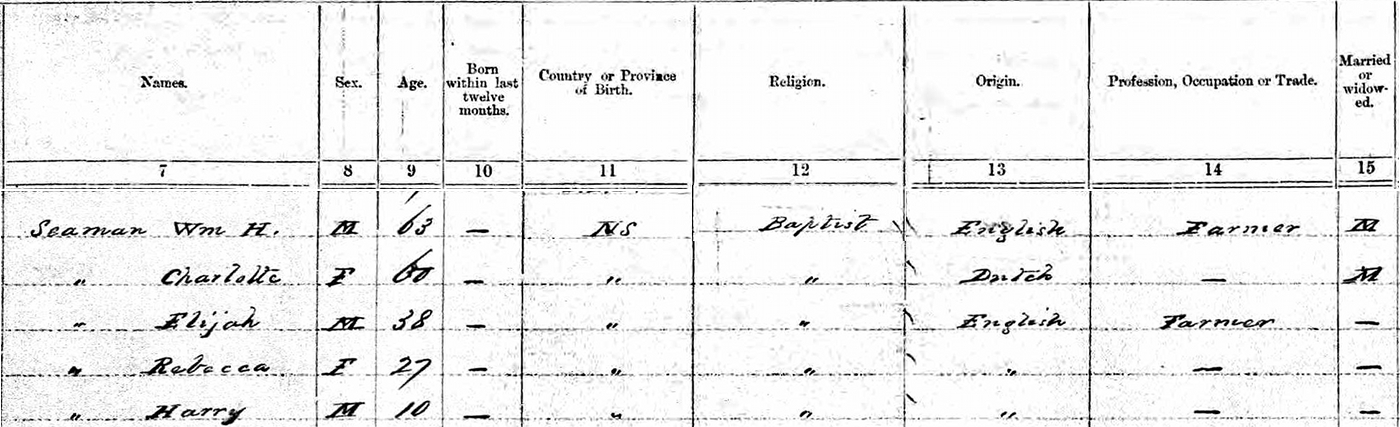 Names. Sex. Age. Born within last twelve months. Country or Province of Birth. Religion. Origin. Profession, Occupation or Trade. Married or widow-ed.
7 8 9 10 11 12 13 14 15
Seaman Wm H. M 63 — NS Baptist English Farmer M
" Charlotte F 60 — " " Dutch — M
" Elijah M 38 — " " English Farmer —
" Rebecca F 27 — " " " — —
" Harry M 10 — " " " — —